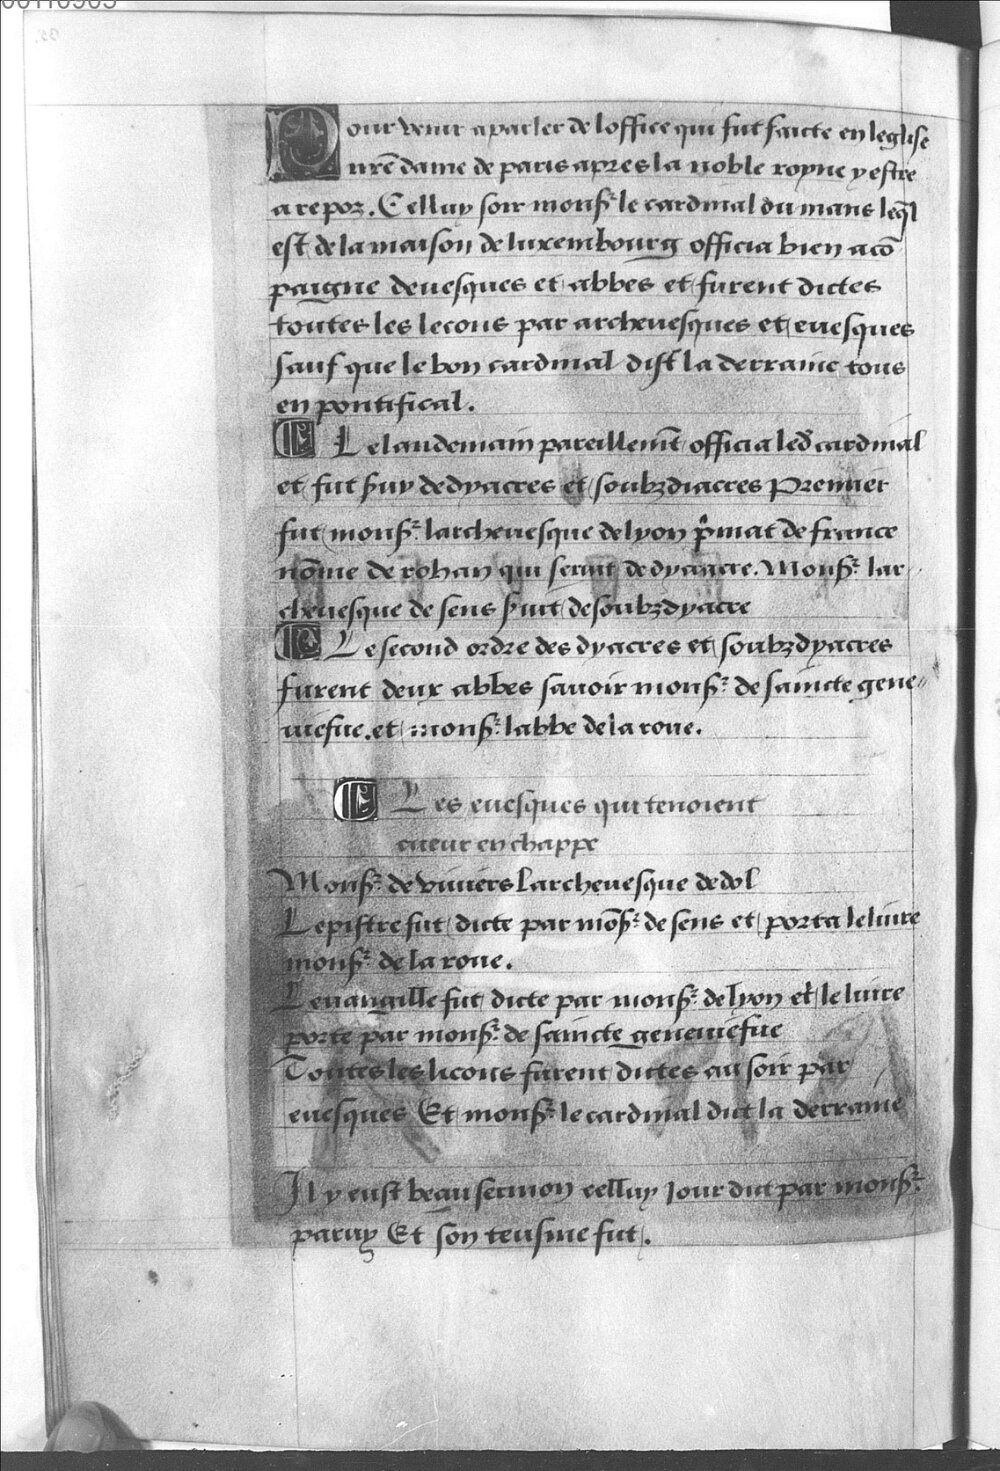 Pour venir a parler de loffice qui fut faicte en leglise
nr̄e dame de paris apres la noble royne y estre
a repoz. Celluy soir monsr le cardinal du mans leql
est de la maison de luxembourg officia bien acō
paigne devesques et abbes et furent dictes
toutes les lecons par archevesques et evesques
sauf que le bon cardinal dist la derraine tous
en pontifical.
Le landemain pareillemēt officia led cardinal
et fut suy de dyacres et soubzdiacres Premier
fut monsr larchevesque de lyon pmat de france
nōme de rohan qui servit de dyacre. Monsr lar
chevesque de sens suit de soubzdyacre
Le second ordre des dyacres et soubzdyacres
furent deux abbes savoir monsr de saincte gene
viefve. et monsr labbe de la roue.
Les evesques qui tenoient
cueur en chappe
Monsr de viviers Larchevesque de dol
Lepistre fut dicte par mōsr de sens et porta le livre
monsr de la roue.
Levangille fut dicte par monsr de lyon et le livre
porte par monsr de saincte geneviefve
Toutes les licons furent dictes au soir par
evesques Et monsr le cardinal dict la derraine
Il y eust beau sermon celluy jour dict par monsr
parvy Et son teusme fut.